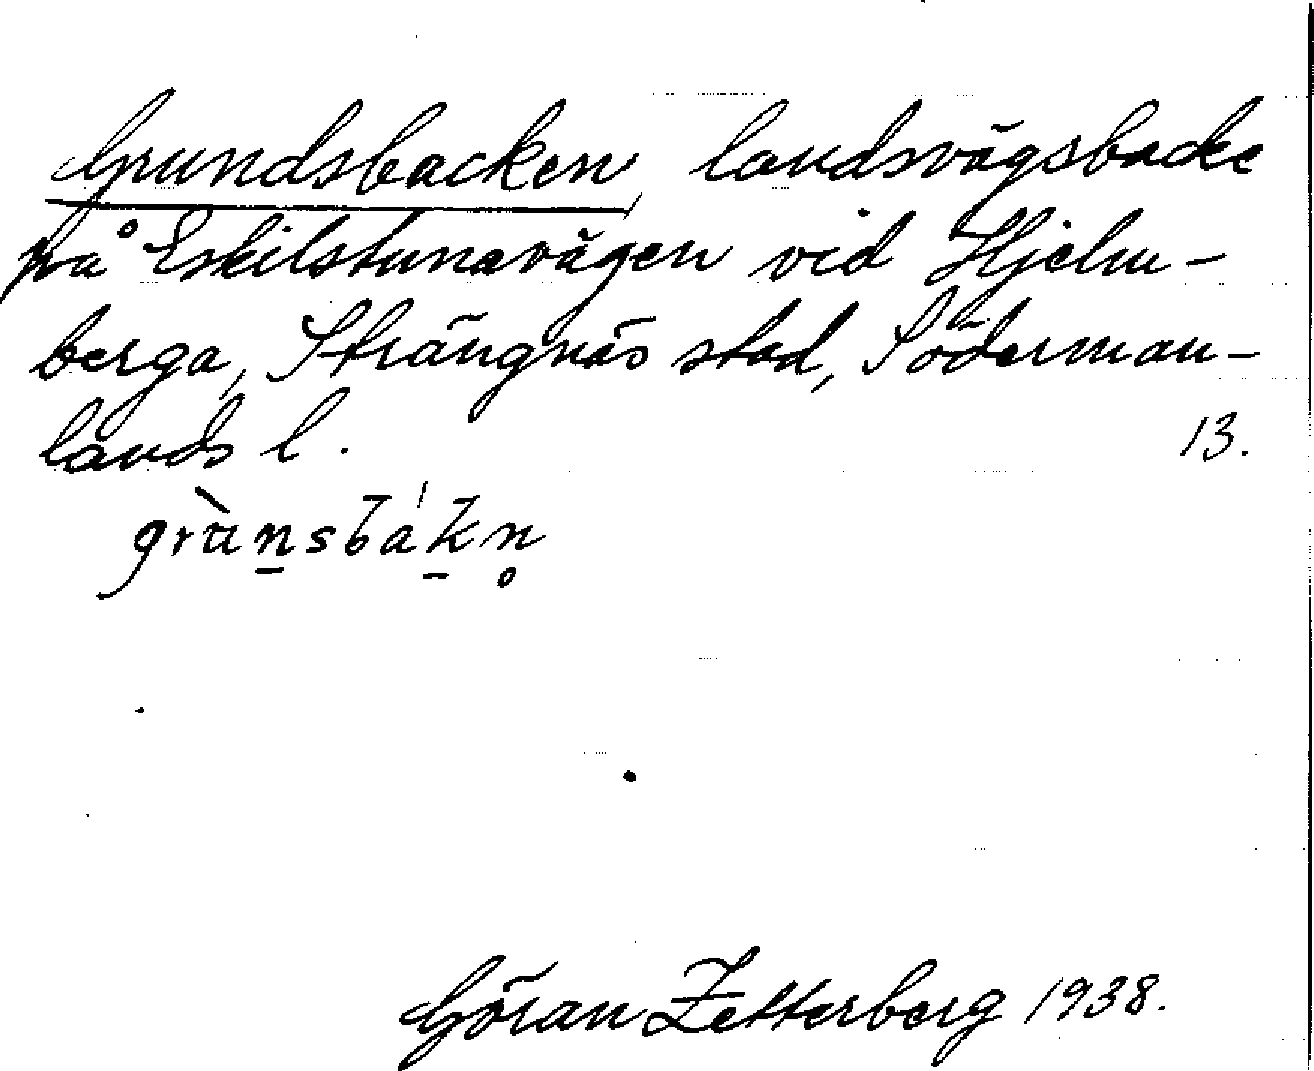 Grundsbacken, landsvägsbacke
på Eskilstunavägen vid Hjelm-
berga, Strängnäs stad, Söderman-
lands l. 13.
grùn̲sbák̲n̥
Göran Zetterberg 1938.